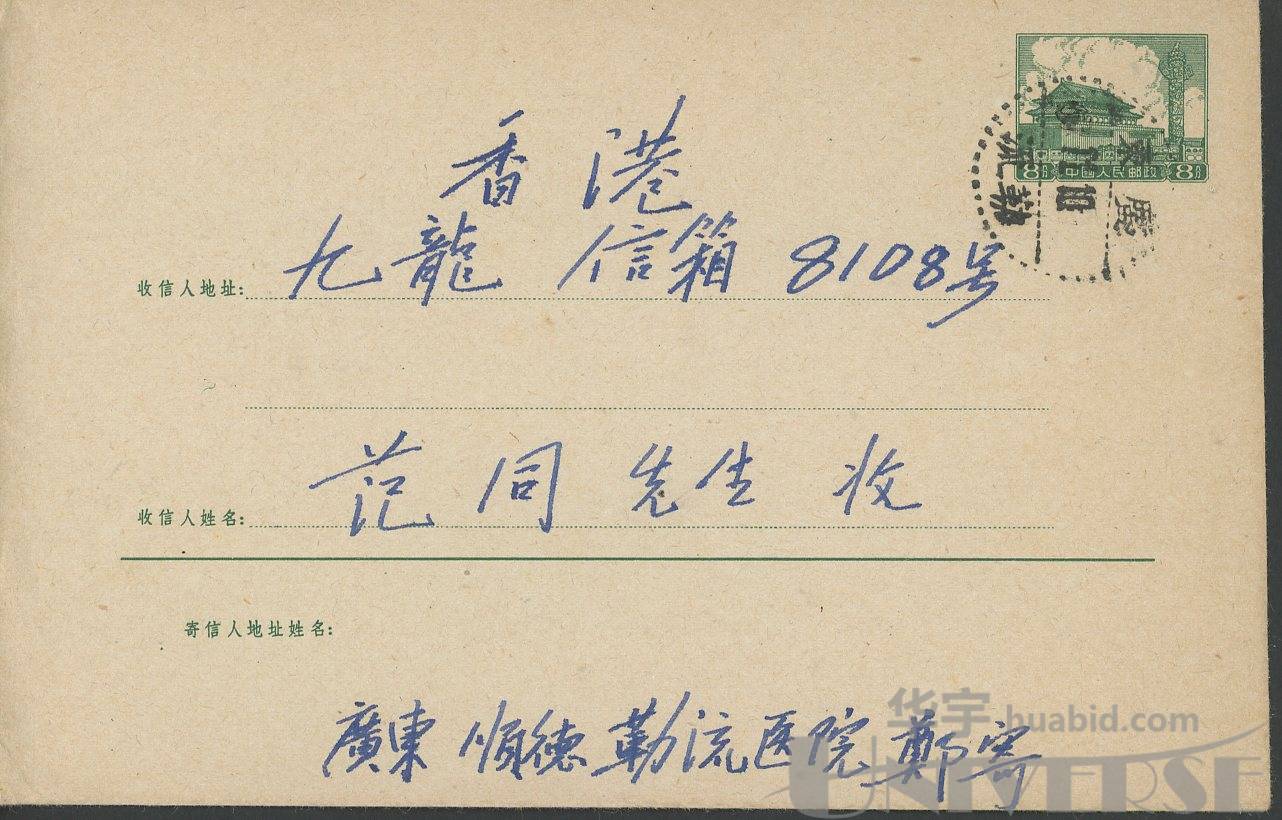 8分 中國人民郵政 8分
廣東
勒流
香港
收信人地址: 九龍 信箱 8108号
范同先生 收
收信人姓名:
寄信人地址姓名:
廣東 順德 勒流医院 鄭寄
华宇 huabid.com
UNIVERSE